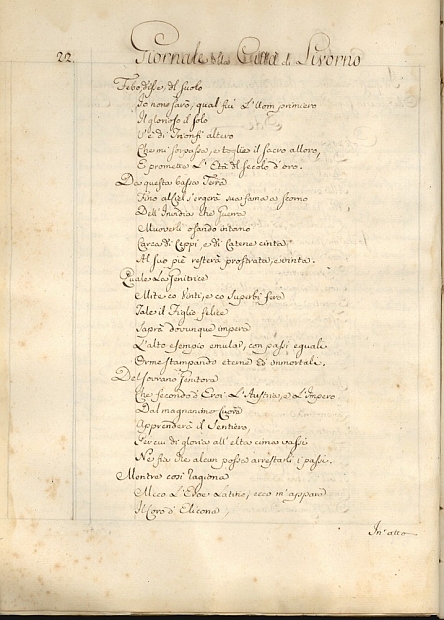 22.
Giornale della Città di Livorno
Febo disse, al suolo
Io non sarò, qual fui L'Uom primiero
Il glorioso il solo
V'è di Trionfi altero
Che mi sorpassa, e toglie il sacro alloro,
E promette L'Età del secolo d'oro.
Da questa bassa Terra
Fino al Ciel s'ergerà sua fama a scorno
Dell'Invidia che Guerra
Muoverli osando intorno
Carca di Ceppi, e di Catene cinta,
Al suo piè resterà prostrata, e vinta.
Quale La Genitrice
Mite co Vinti, e co Superbi fera
Tale il Figlio felice
Saprà dovunque impera
L'alto esempio emular, con passi eguali
Orme stampando eterne ed immortali.
Del sovrano Genitore
Che secondò d'Eroi L'Austria, e L'Impero
Dal magnanimo Cuore
Apprenderà il Sentiero,
Per cui di gloria all'elta cima vassi
Ne fia che alcun possa arrestarli i passi.
Mentre così ragiona
Meco L'Edoe Latino, ecco m'appare
Il Coro d'Elicona
In atto